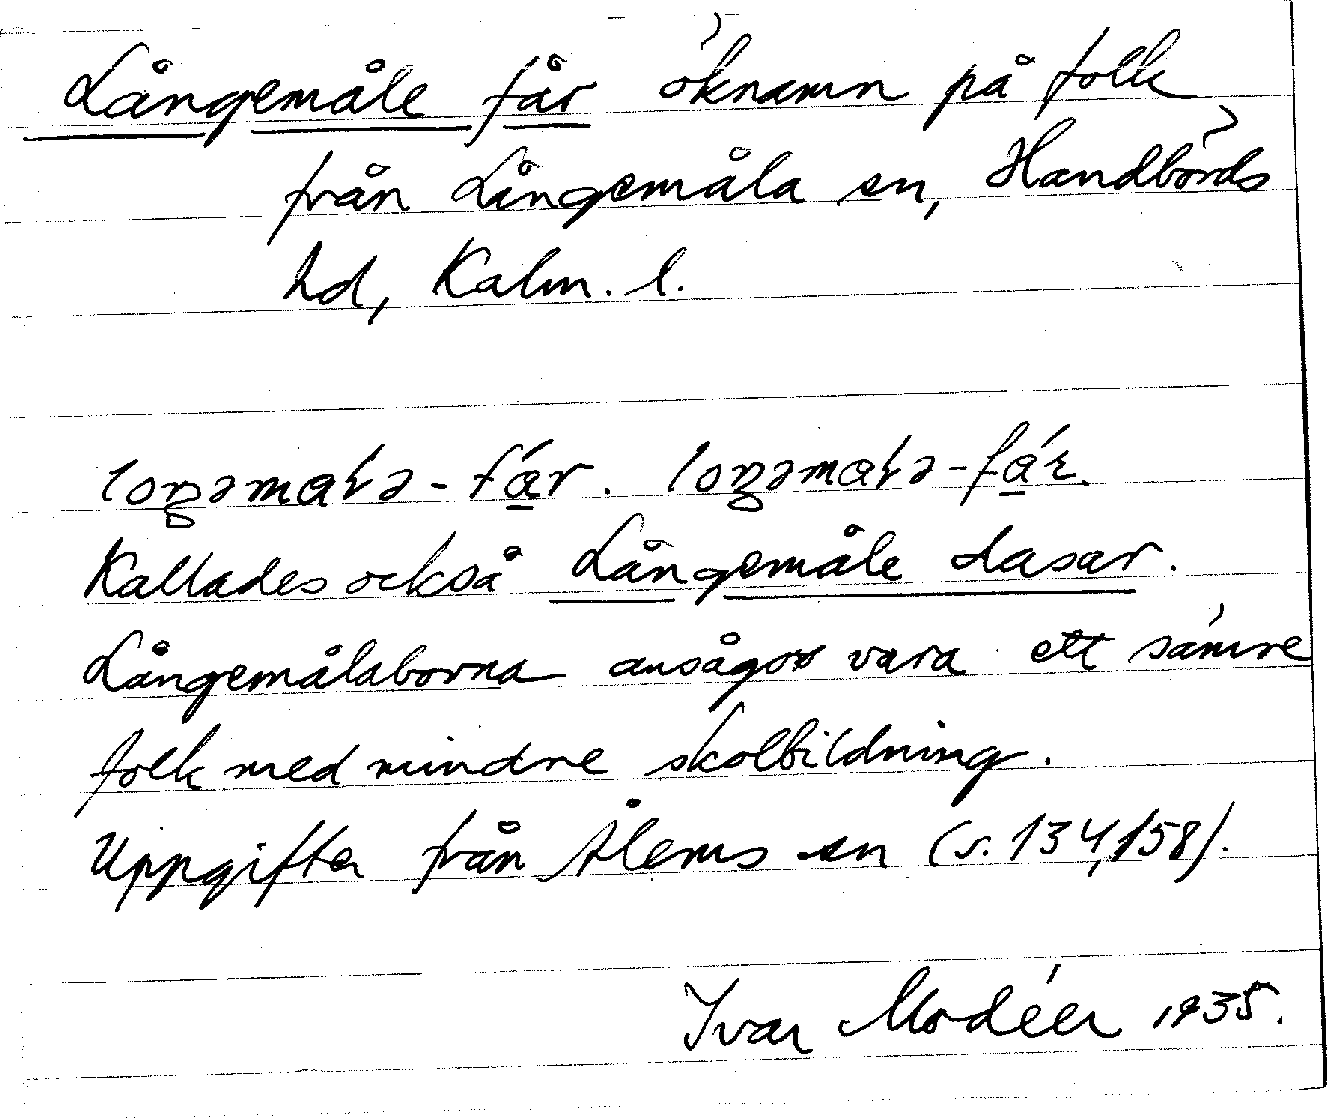 Långemåle får öknamn på folk
från Långemåla sn, Handbörds
hd, Kalm. l.
Kallades också Långemåle dasar.
Långemålaborna ansågos vara ett sämre
folk med mindre skolbildning.
Uppgifter från Ålems sn (s. 134, 158).
Ivar Modéer 1935.